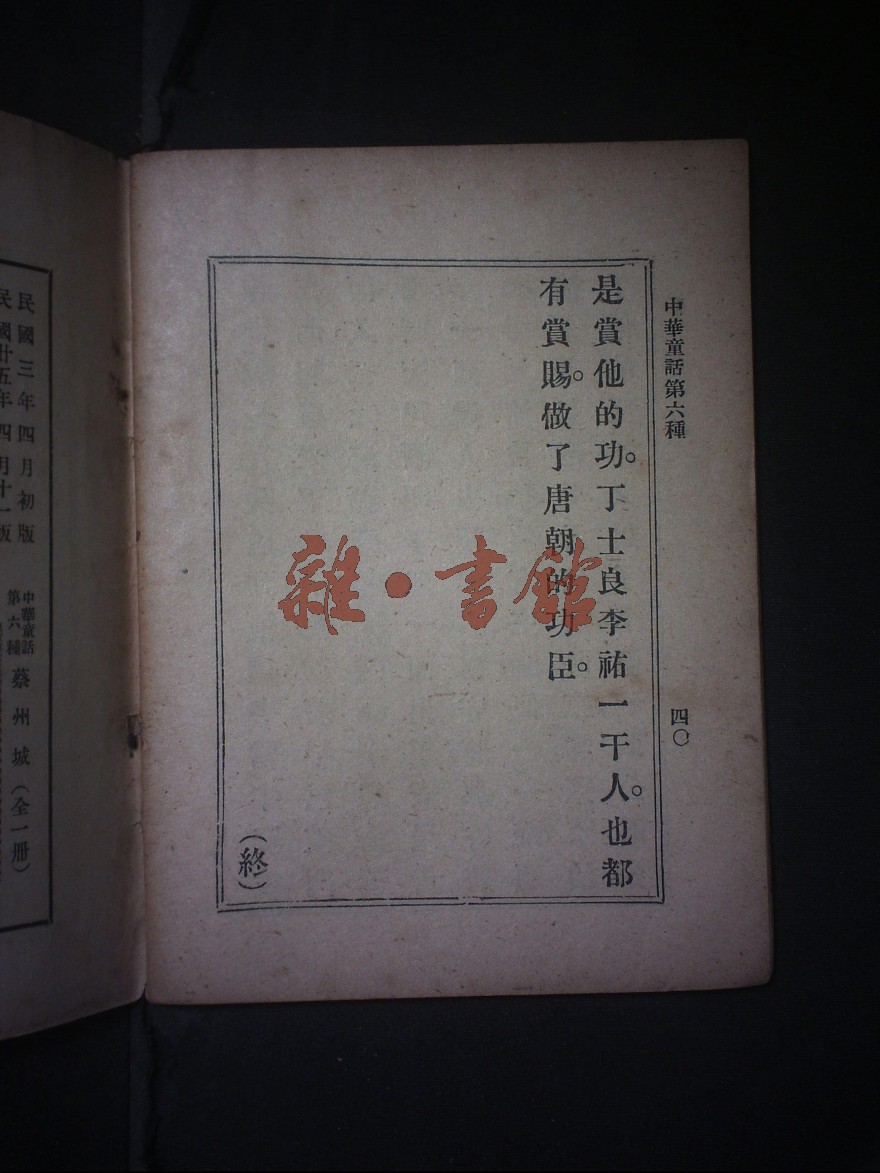 中華童話第六種
四〇
是賞他的功。丁士良李祐一干人。也都
有賞賜。做了唐朝的功臣。
（終）
雜·書館
民國三年四月初版
民國廿五年四月十一版
中華童話
第六種
蔡州城（全一冊）